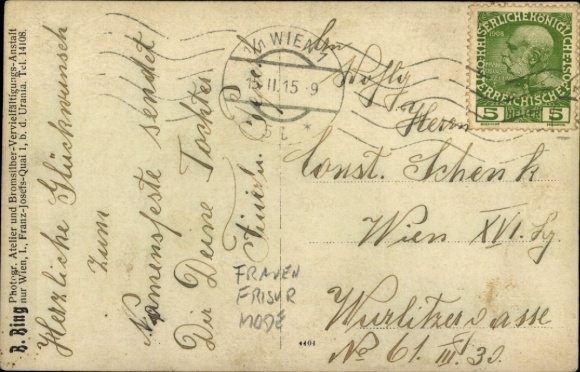 B. Bing Photogr. Atelier und Bromsilber-Vervielfältigungs-Anstalt
nur Wien, I., Franz-Josefs-Quai 1, b. d. Urania. Tel. 14108.
Herzliche Glückwunsch
zum
Namensfeste sendet
Dir Deine Tochter
FRAUEN
FRISUR
MODE
4404
1/1 WIEN 1
15.II.15-9
KAISERLICHEKÖNIGLICHE
1908
ÖSTERREICHISCHE
5 HELLER 5
Herrn
Const. Schenk
Wien XVI. Bg
Wurlitzergasse
No 61. III. 30.